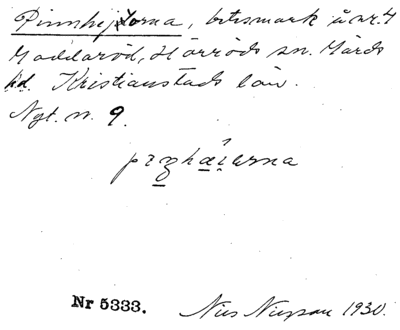 Pinnhejorna, betesmark å nr. 4
Maddaröd, Hörröds sn. Gärds
hd. Kristianstads län.
Nyt. n. 9.
Nr 5333.
Nils Nilsson 1930.